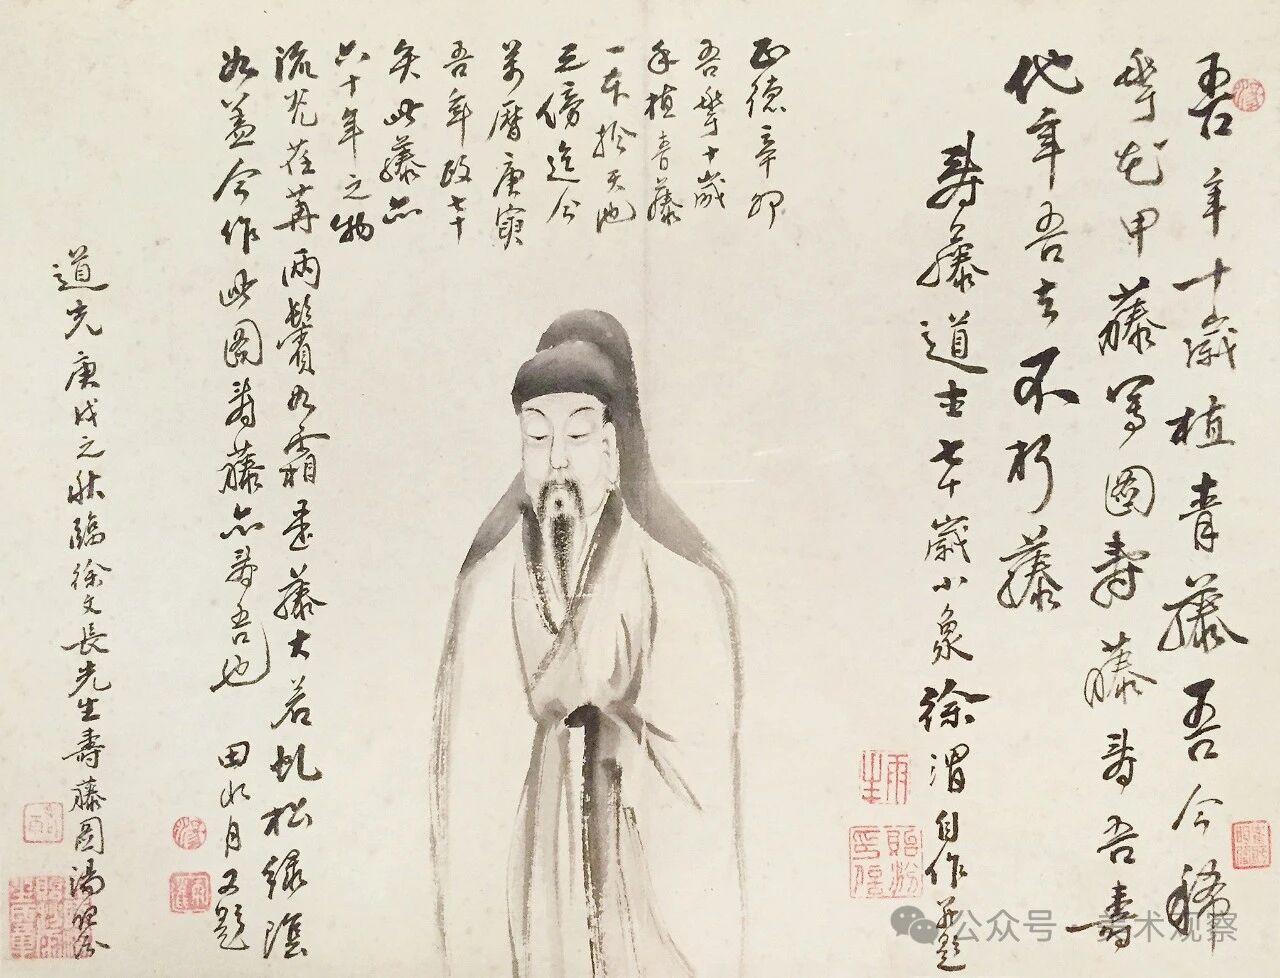 吾年十歲植青藤吾今稀
秊花甲藤寫圖壽藤壽吾壽
他年吾去不朽藤
壽藤道士七十歲小象徐渭自作并題
正德辛卯
吾秊十歲
手植青藤
一本於天池
之傍迄今
萬曆庚寅
吾年政七十
矣此藤亦
六十年之物
流光荏苒兩鬢如霜是藤大若虬松綠蔭
如蓋今作此圖壽藤亦壽吾也 田水月又題
道光庚戌之秋臨徐文長先生壽藤圖湯貽汾
雨生
公众号·美术观察